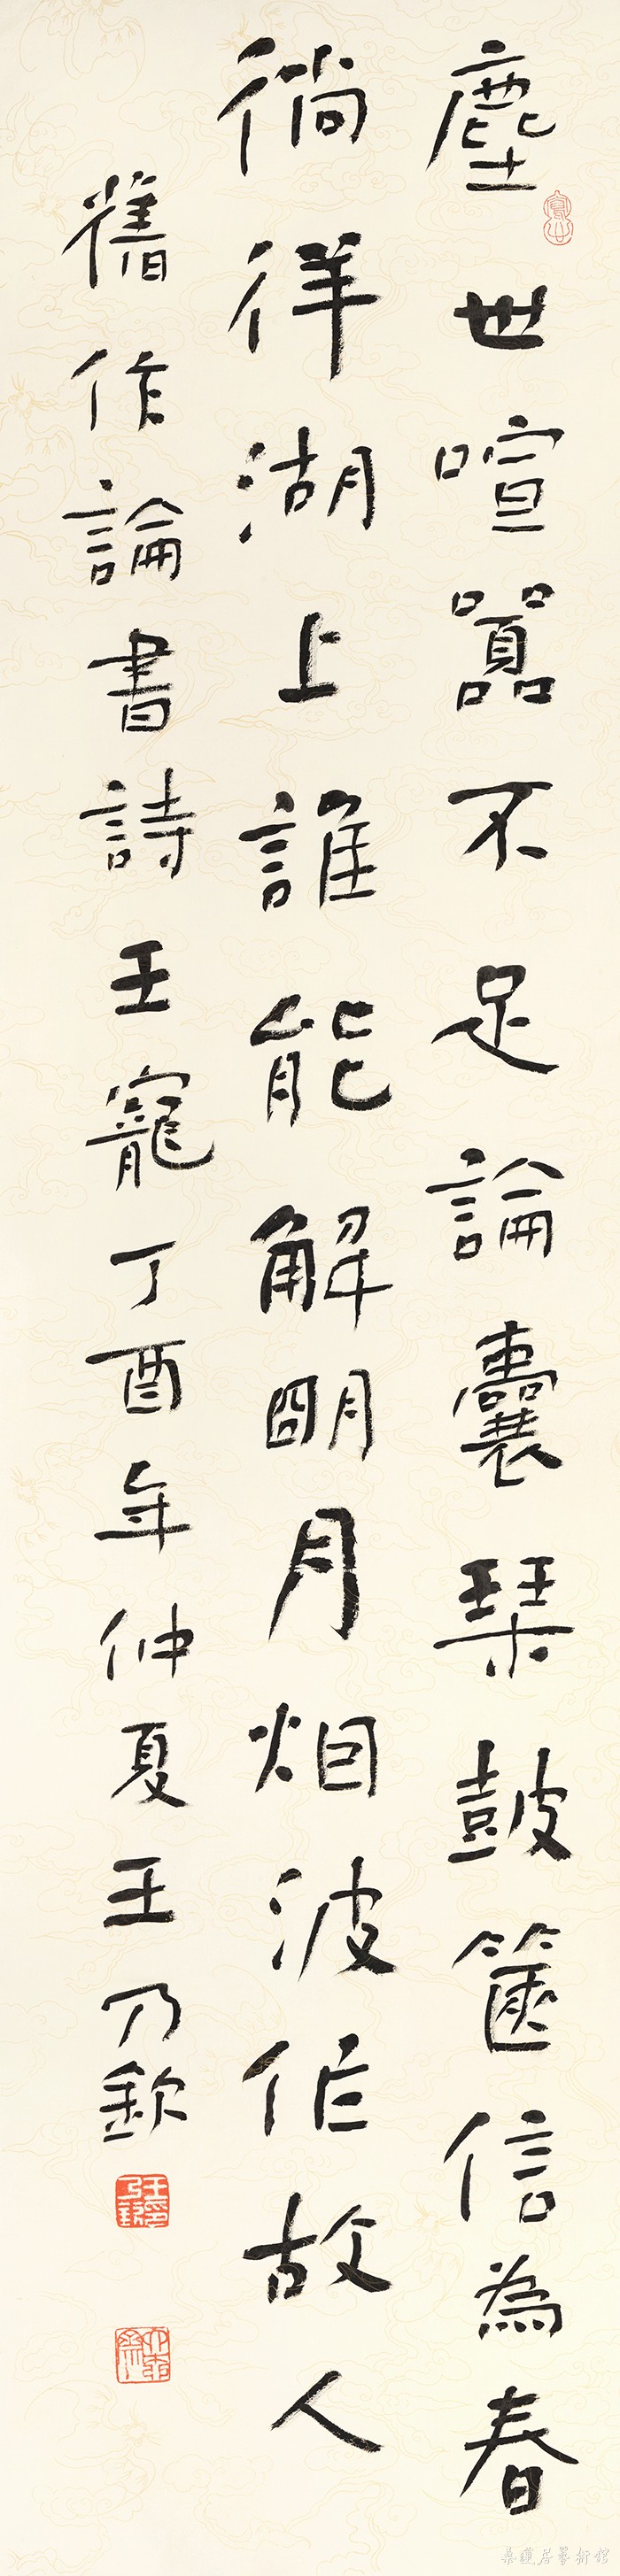 塵世喧囂不足論囊琹鼓篋信為春
徜徉湖上誰能解朙月烟波作故人
舊作論書詩王寵丁酉年仲夏王乃欽